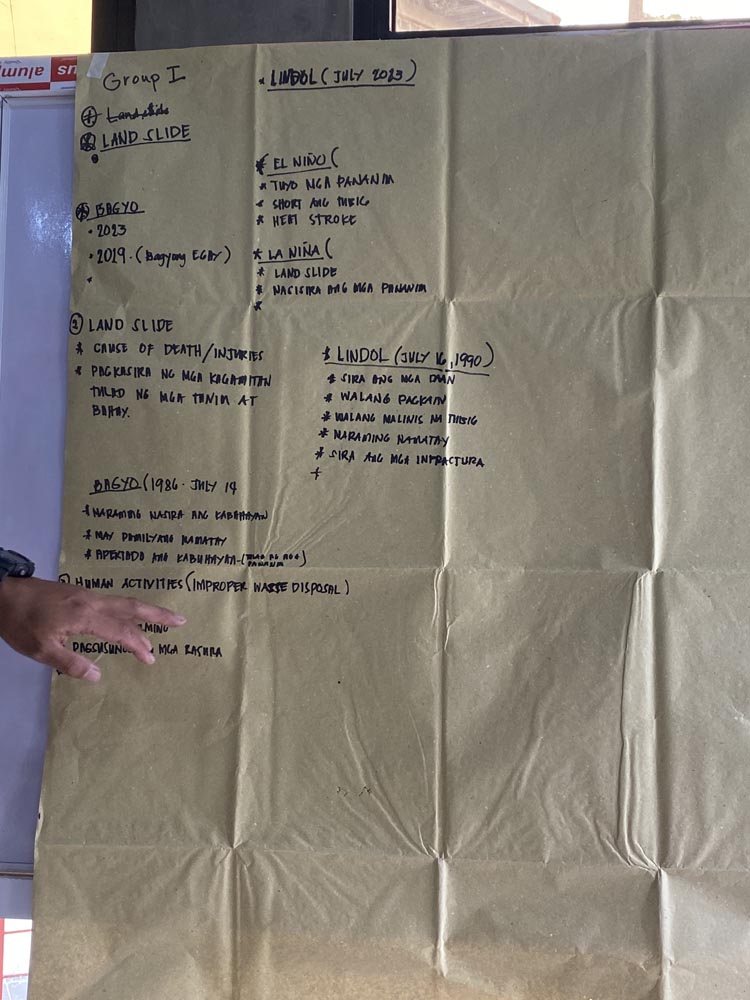 Group I
Landslide
LAND SLIDE
BAGYO
• 2023
• 2019. (Bagyong EGAY)
* LINDOL (JULY 2023)
* EL NIÑO (
* TUYO MGA PANANIM
* SHORT ANG TUBIG
* HEAT STROKE
* LA NIÑA (
* LAND SLIDE
* NASISIRA ANG MGA PANANIM
*
② LAND SLIDE
* CAUSE OF DEATH/INJURIES
* PAGKASIRA NG MGA KAGAMITAN
TULAD NG MGA TANIM AT
BAHAY.
* LINDOL (JULY 16, 1990)
* SIRA ANG MGA DAAN
* WALANG PAGKAIN
* WALANG MALINIS NA TUBIG
* MARAMING NAMATAY
* SIRA ANG MGA INFRACTURA
+
BAGYO (1986 - JULY 14
* MARAMING NASIRA ANG KABAHAYAN
* MAY PAMILYANG NAMATAY
* APEKTADO ANG KABUHAYAN-(
PANANIM)
HUMAN ACTIVITIES (IMPROPER WASTE DISPOSAL)
MGA BASURA